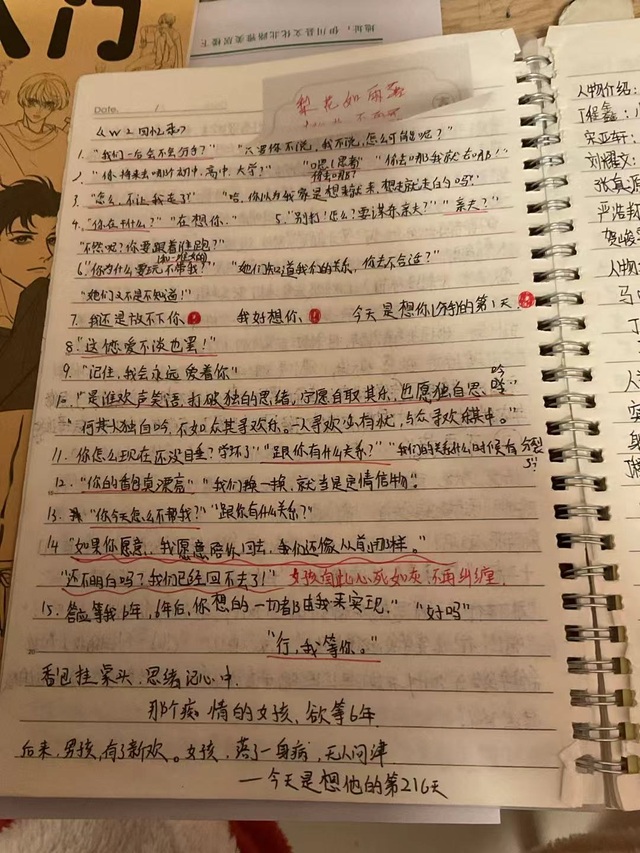 入门
地址：伊川县文化北路雅美居楼下
Date.
梨花如雨落
《W Z 回忆录》
1. "我们一后会不会分手？" "只要你不说，我不说，怎么可能呢？"
2. "你将来去哪个初中，高中，大学？" "嗯(思考)你去哪？" "你去哪我就去哪！"
3. "怎么，不让我走了？" "哈，你以为我家是想来就来，想走就走的吗？"
4. "你在干什么？" "在想你." 5. "别打！怎么？要谋杀亲夫？" "亲夫？"
"不然呢？你要跟着谁跑？"
6. "你为什么要玩不带我？" "她们知道我们的关系，你去不合适？"
"她们又不是不知道！"
7. 我还是放不下你、 我好想你、 今天是想你(分手)的第1天.
8. "这恋爱不谈也罢！"
9. "记住，我会永远爱着你"
10. "是谁欢声笑语，打破独自的思绪，宁愿自取其乐，也愿独自思吟."
"何其人独自吟，不如众其寻欢乐。一人寻欢必有忧，与众寻欢
11. 你怎么现在还没自垂？学坏了" "跟你有什么关系？" "我们的关系什么时候有分裂了？"
12. "你的香包真漂亮" "我们换一换，就当是定情信物"
13. "你今天怎么不帮我？" "跟你有什么关系？"
14 "如果你愿意，我愿意陪你回去，我们还像从前那样。"
"还不明白吗？我们已经回不去了！" 女孩自此心死如灰，不再纠缠.
15. 答应等我6年，6年后，你想的一切都由我来实现." "好吗"
"行，我等你。"
香包挂案头，思绪记心中.
那个痴情的女孩、欲等6年.
后来，男孩，有了新欢。女孩，落了一身病，无人问津
—今天是想他的第216天
人物介绍：
丁程鑫：
宋亚轩：
刘耀文：
张真源
严浩翔
贺峻
人物
马
丁